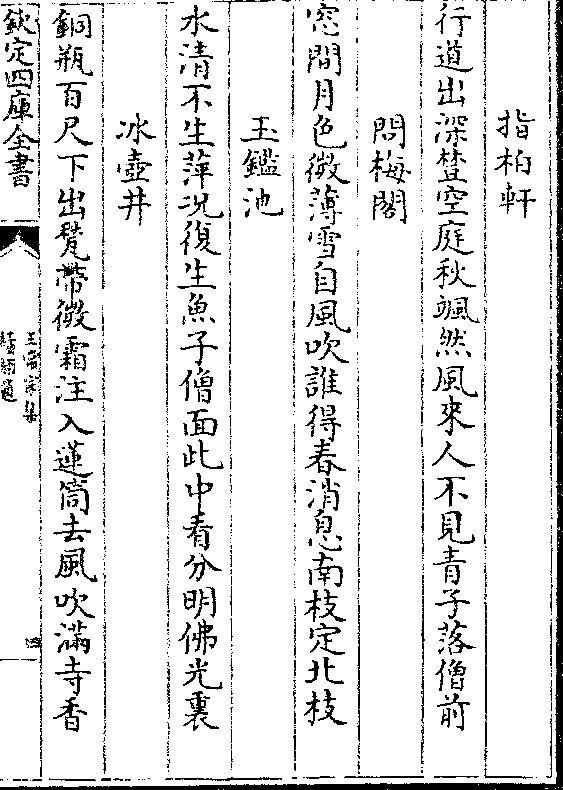 指柏軒
行道出深㙮空庭秋颯然風來人不見青子落僧前
問梅閣
窓間月色微薄雪自風吹誰得春消息南枝定北枝
玉鑑池
水清不生萍况復生魚子僧面此中看分明佛光裏
冰壺井
銅瓶百尺下出甃帶微霜注入蓮筒去風吹滿寺香
欽定四庫全書
四